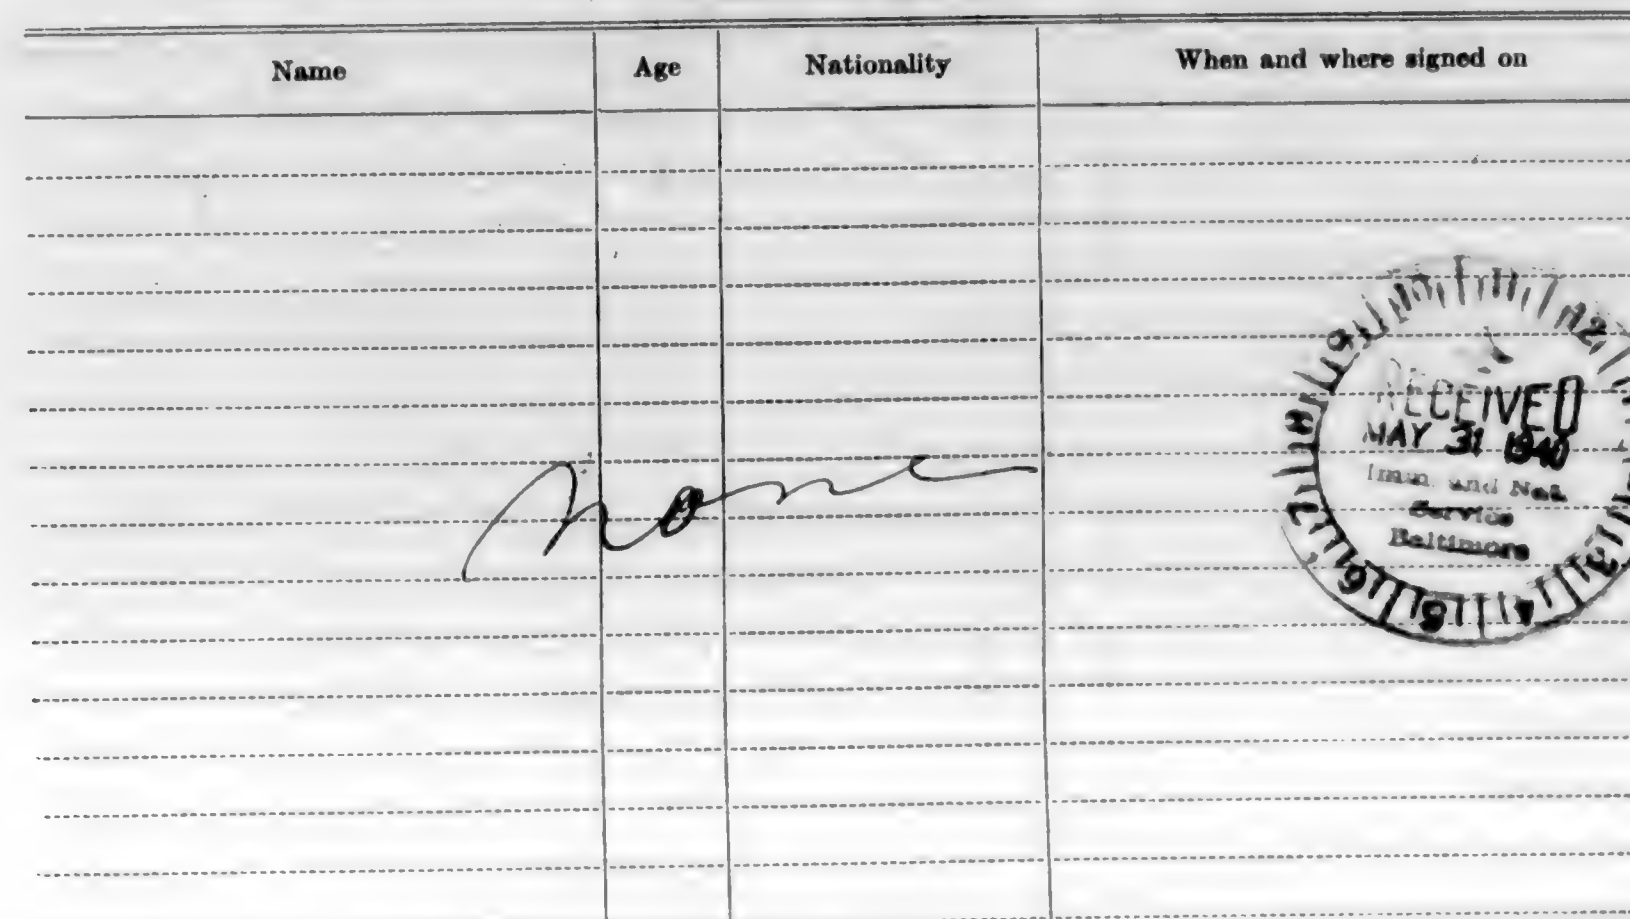 Name Age Nationality When and where signed on
None
9 10 11 12
RECEIVED
MAY 31 1940
Imm. and Nat.
Service
Baltimore
8 7 6 5 4 3